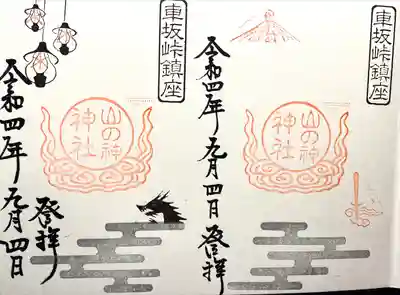 車坂峠鎮座
山の神
神社
令和四年九月四日登拝
車坂峠鎮座
山の神
神社
令和四年九月四日
登拝